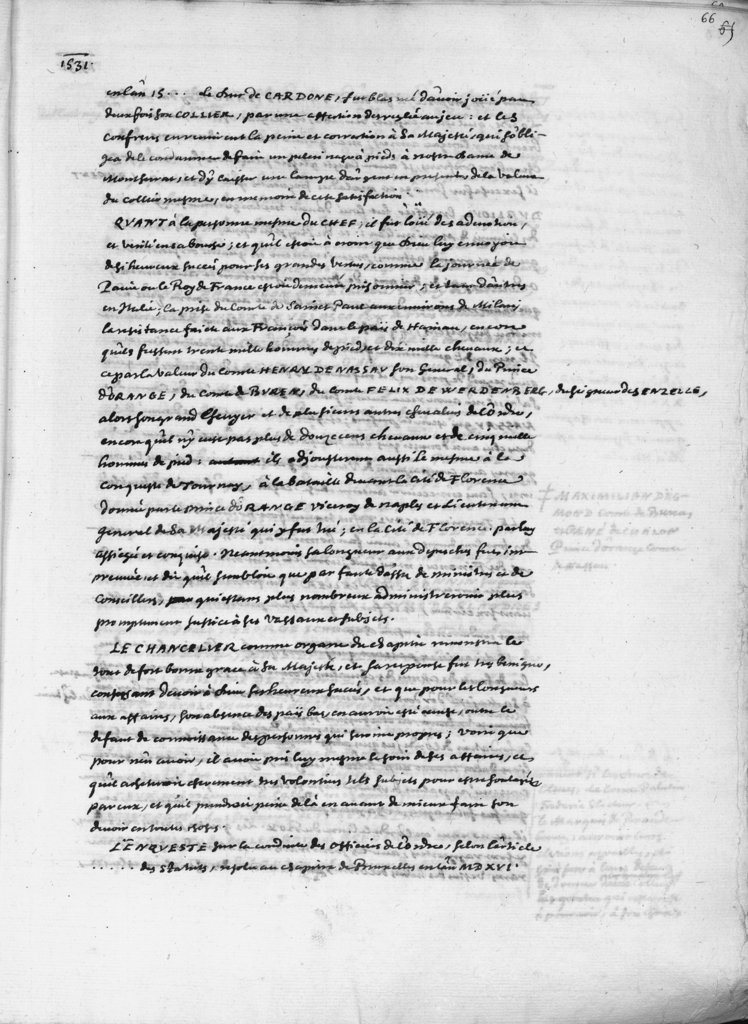 66
1531.
en l'an 15... le Duc de CARDONE, fut blasmé d'avoir joüé par
deux fois son COLLIER, par une affection desreglée au jeu: et les
Confreres en remirent la peine et correction à Sa Majesté, qui l'obli-
gea de le condamner de faire un pelerinage à pieds à nostre Dame de
Montserrat, et d'y laisser une lampe d'argent en presente, de la valeur
du collier mesme, en memoire de cete satisfaction.
QVANT à la personne mesme du CHEF, il fut loüé de sa devotion,
et verité en sa bouche; et qu'il estoit à croire que Dieu luy envoyoit
de si heureux succés pour ses grandes vertus, comme la journée de
Pavie ou le Roy de France estoit demeuré prisonnier, et tant d'autres
en Italie; la prise du Comte de Sainct Paul aux environs de Milan,
la resistance faicte aux François dans le païs de Hainau, encore
qu'ils fussent trente mille hommes de pied, et dix mille chevaux; et
ce par la valeur du Comte HENRY DE NASSAV son General, du Prince
d'ORANGE, du Comte de BVREN, du Comte FELIX DE WERDENBERG, du Seigneur de SENZELLE,
alors son grand Escuyer et de plusieurs autres chevaliers de l'ordre,
encor qu'il n'y eust pas plus de douze cens chevaux et de cinq mille
hommes de pied: ils adjousterent aussi le mesme à la
conqueste de Tournay, à la bataille devant la Cité de Florence
donnée par le Prince d'ORANGE Viceroy de Naples et Lieutenant
general de Sa Majesté qui y fut tué; en la Cité de Florence par luy
assiegée et conquise. Neantmoins sa longueur aux depesches fut im-
preuvée, et dit qu'il sembloit que par faute d'assez de ministres et de
Conseillers, qui estans plus nombreux administreroient plus
promptement justice à ses vassaux et subjets.
LE CHANCELIER comme organe du chapitre remonstra le
tout de fort bonne grace à Sa Majesté, et sa response fut tres benigne,
confessant devoir à Dieu ses heureux succés, et que pour les longueurs
aux affaires, son absence des païs bas en avoit esté cause, outre le
defaut de connoissance des personnes qui seroient propres; voire que
pour n'en avoir, il avoit pris luy mesme le soin de ses affaires, et
qu'il acheteroit cherement des volontiers tels subjets pour estre soulagé
par eux, et qu'il prendroit peine de là en avant de mieux faire son
devoir en toutes choses.
L'ENQVESTE sur la conduite des officiers de l'ordre, selon l'article
...... des Statuts, resolu au chapitre de Bruxelles en l'an MDXVI.